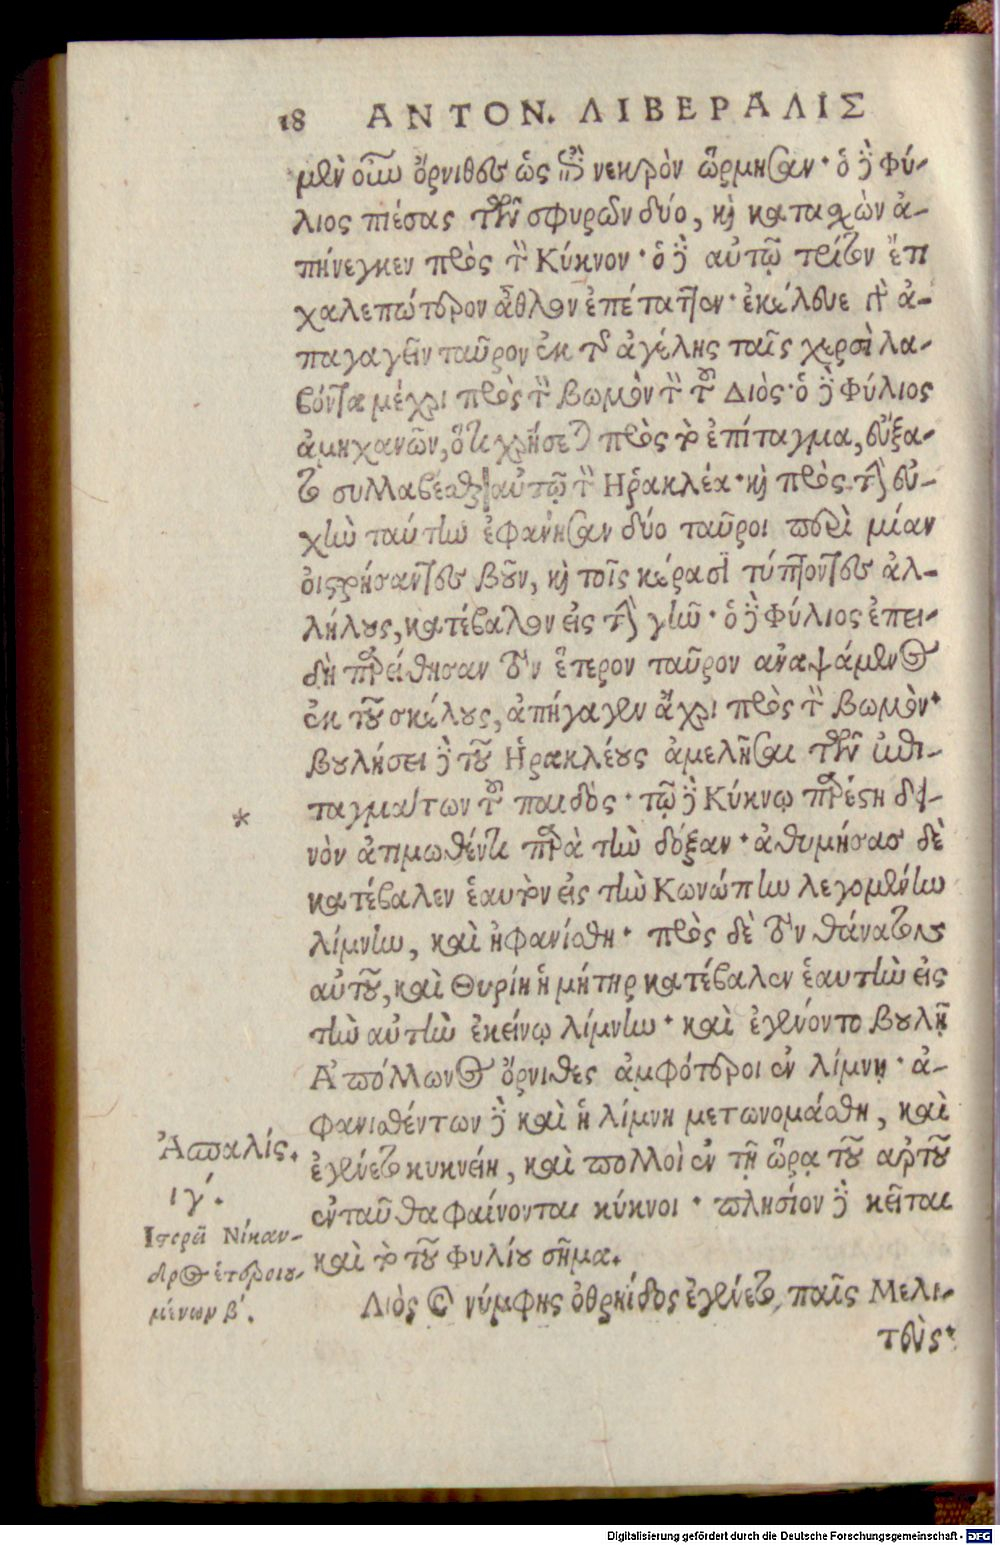 18 ΑΝΤΟΝ. ΛΙΒΕΡΑΛΙΣ
μὲν οὖν ὄρνιθες ὡς ἐπὶ νεκρὸν ὥρμησαν· ὁ δὲ Φύ-
λιος πιέσας τῶν σφυρῶν δύο, καὶ κατασχὼν ἀ-
πήνεγκεν πρὸς τὸν Κύκνον· ὁ δὲ αὐτῷ τρίτον ἔτι
χαλεπώτερον ἆθλον ἐπέταττεν· ἐκέλευε γὰρ ἀ-
παγαγεῖν ταῦρον ἐκ τῆς ἀγέλης ταῖς χερσὶ λα-
βόντα μέχρι πρὸς τὸν βωμὸν τὸν τοῦ Διὸς· ὁ δὲ Φύλιος
ἀμηχανῶν, ὅτι χρήσεται πρὸς τὸ ἐπίταγμα, εὔξα-
το συλλαβέσθαι αὐτῷ τὸν Ἡρακλέα· καὶ πρὸς τὴν εὐ-
χὴν ταύτην ἐφάνησαν δύο ταῦροι περὶ μίαν
οἰστρήσαντες βοῦν, καὶ τοῖς κέρασι τύπτοντες ἀλ-
λήλους, κατέβαλον εἰς τὴν γῆν· ὁ δὲ Φύλιος ἐπει-
δὴ παρείθησαν τὸν ἕτερον ταῦρον ἀναψάμενος
ἐκ τοῦ σκέλους, ἀπήγαγεν ἄχρι πρὸς τὸν βωμὸν·
βουλήσει δὲ τοῦ Ἡρακλέους ἀμελῆσαι τῶν ἐπι-
ταγμάτων τοῦ παιδὸς· τῷ δὲ Κύκνῳ παρέστη δει-
* νὸν ἀτιμωθέντι παρὰ τὴν δόξαν· ἀθυμήσας δὲ
κατέβαλεν ἑαυτὸν εἰς τὴν Κωνώπην λεγομένην
λίμνην, καὶ ἠφανίσθη· πρὸς δὲ τὸν θάνατον
αὐτοῦ, καὶ Θυρίη ἡ μήτηρ κατέβαλεν ἑαυτὴν εἰς
τὴν αὐτὴν ἐκείνῳ λίμνην· καὶ ἐγένοντο βουλῇ
Ἀπόλλωνος ὄρνιθες ἀμφότεροι ἐν λίμνῃ· ἀ-
φανισθέντων δὲ καὶ ἡ λίμνη μετωνομάσθη, καὶ
ἐγένετο κυκνείη, καὶ πολλοὶ ἐν τῇ ὥρᾳ τοῦ ἀρότου
ἐνταῦθα φαίνονται κύκνοι· πλησίον δὲ κεῖται
καὶ τὸ τοῦ Φυλίου σῆμα.
Ἀσπαλίς.
ιγʹ.
Ἱστορεῖ Νίκαν-
δρος ἑτεροιου-
μένων βʹ.
Διὸς καὶ νύμφης ὀθρηίδος ἐγένετο παῖς Μελι-
τεὺς·
Digitalisierung gefördert durch die Deutsche Forschungsgemeinschaft - DFG